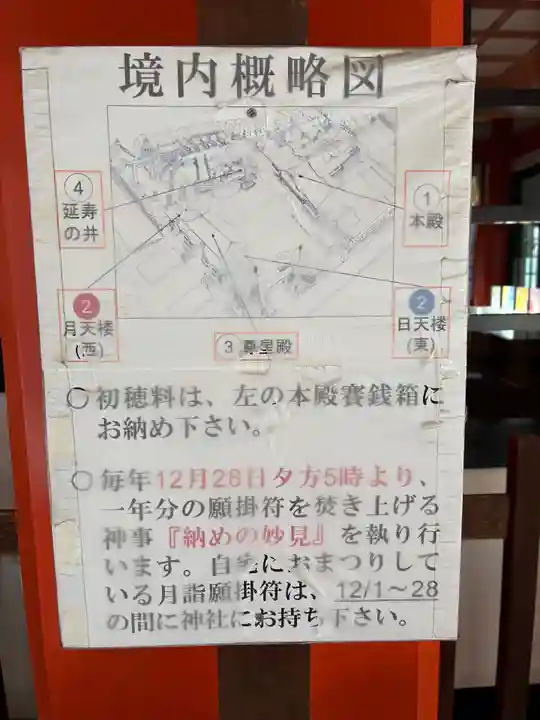 境内概略図
④
延寿
の井
①
本殿
②
月天楼
(西)
②
日天楼
(東)
③ 尊星殿
○初穂料は、左の本殿賽銭箱に
お納め下さい。
○毎年12月28日夕方5時より、
一年分の願掛符を焚き上げる
神事『納めの妙見』を執り行
います。自宅におまつりして
いる月詣願掛符は、12/1〜28
の間に神社にお持ち下さい。